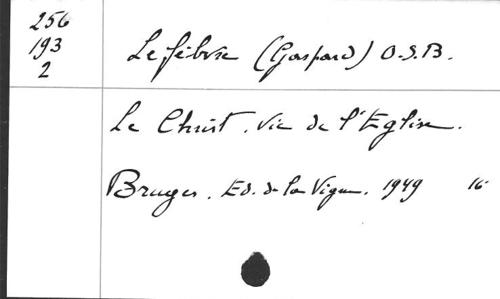 256
193
2
Lefébvre (Gaspard) O.S.B.
Le Christ. Vie de l'Eglise.
Bruges. Ed. de la Vigne. 1949 16